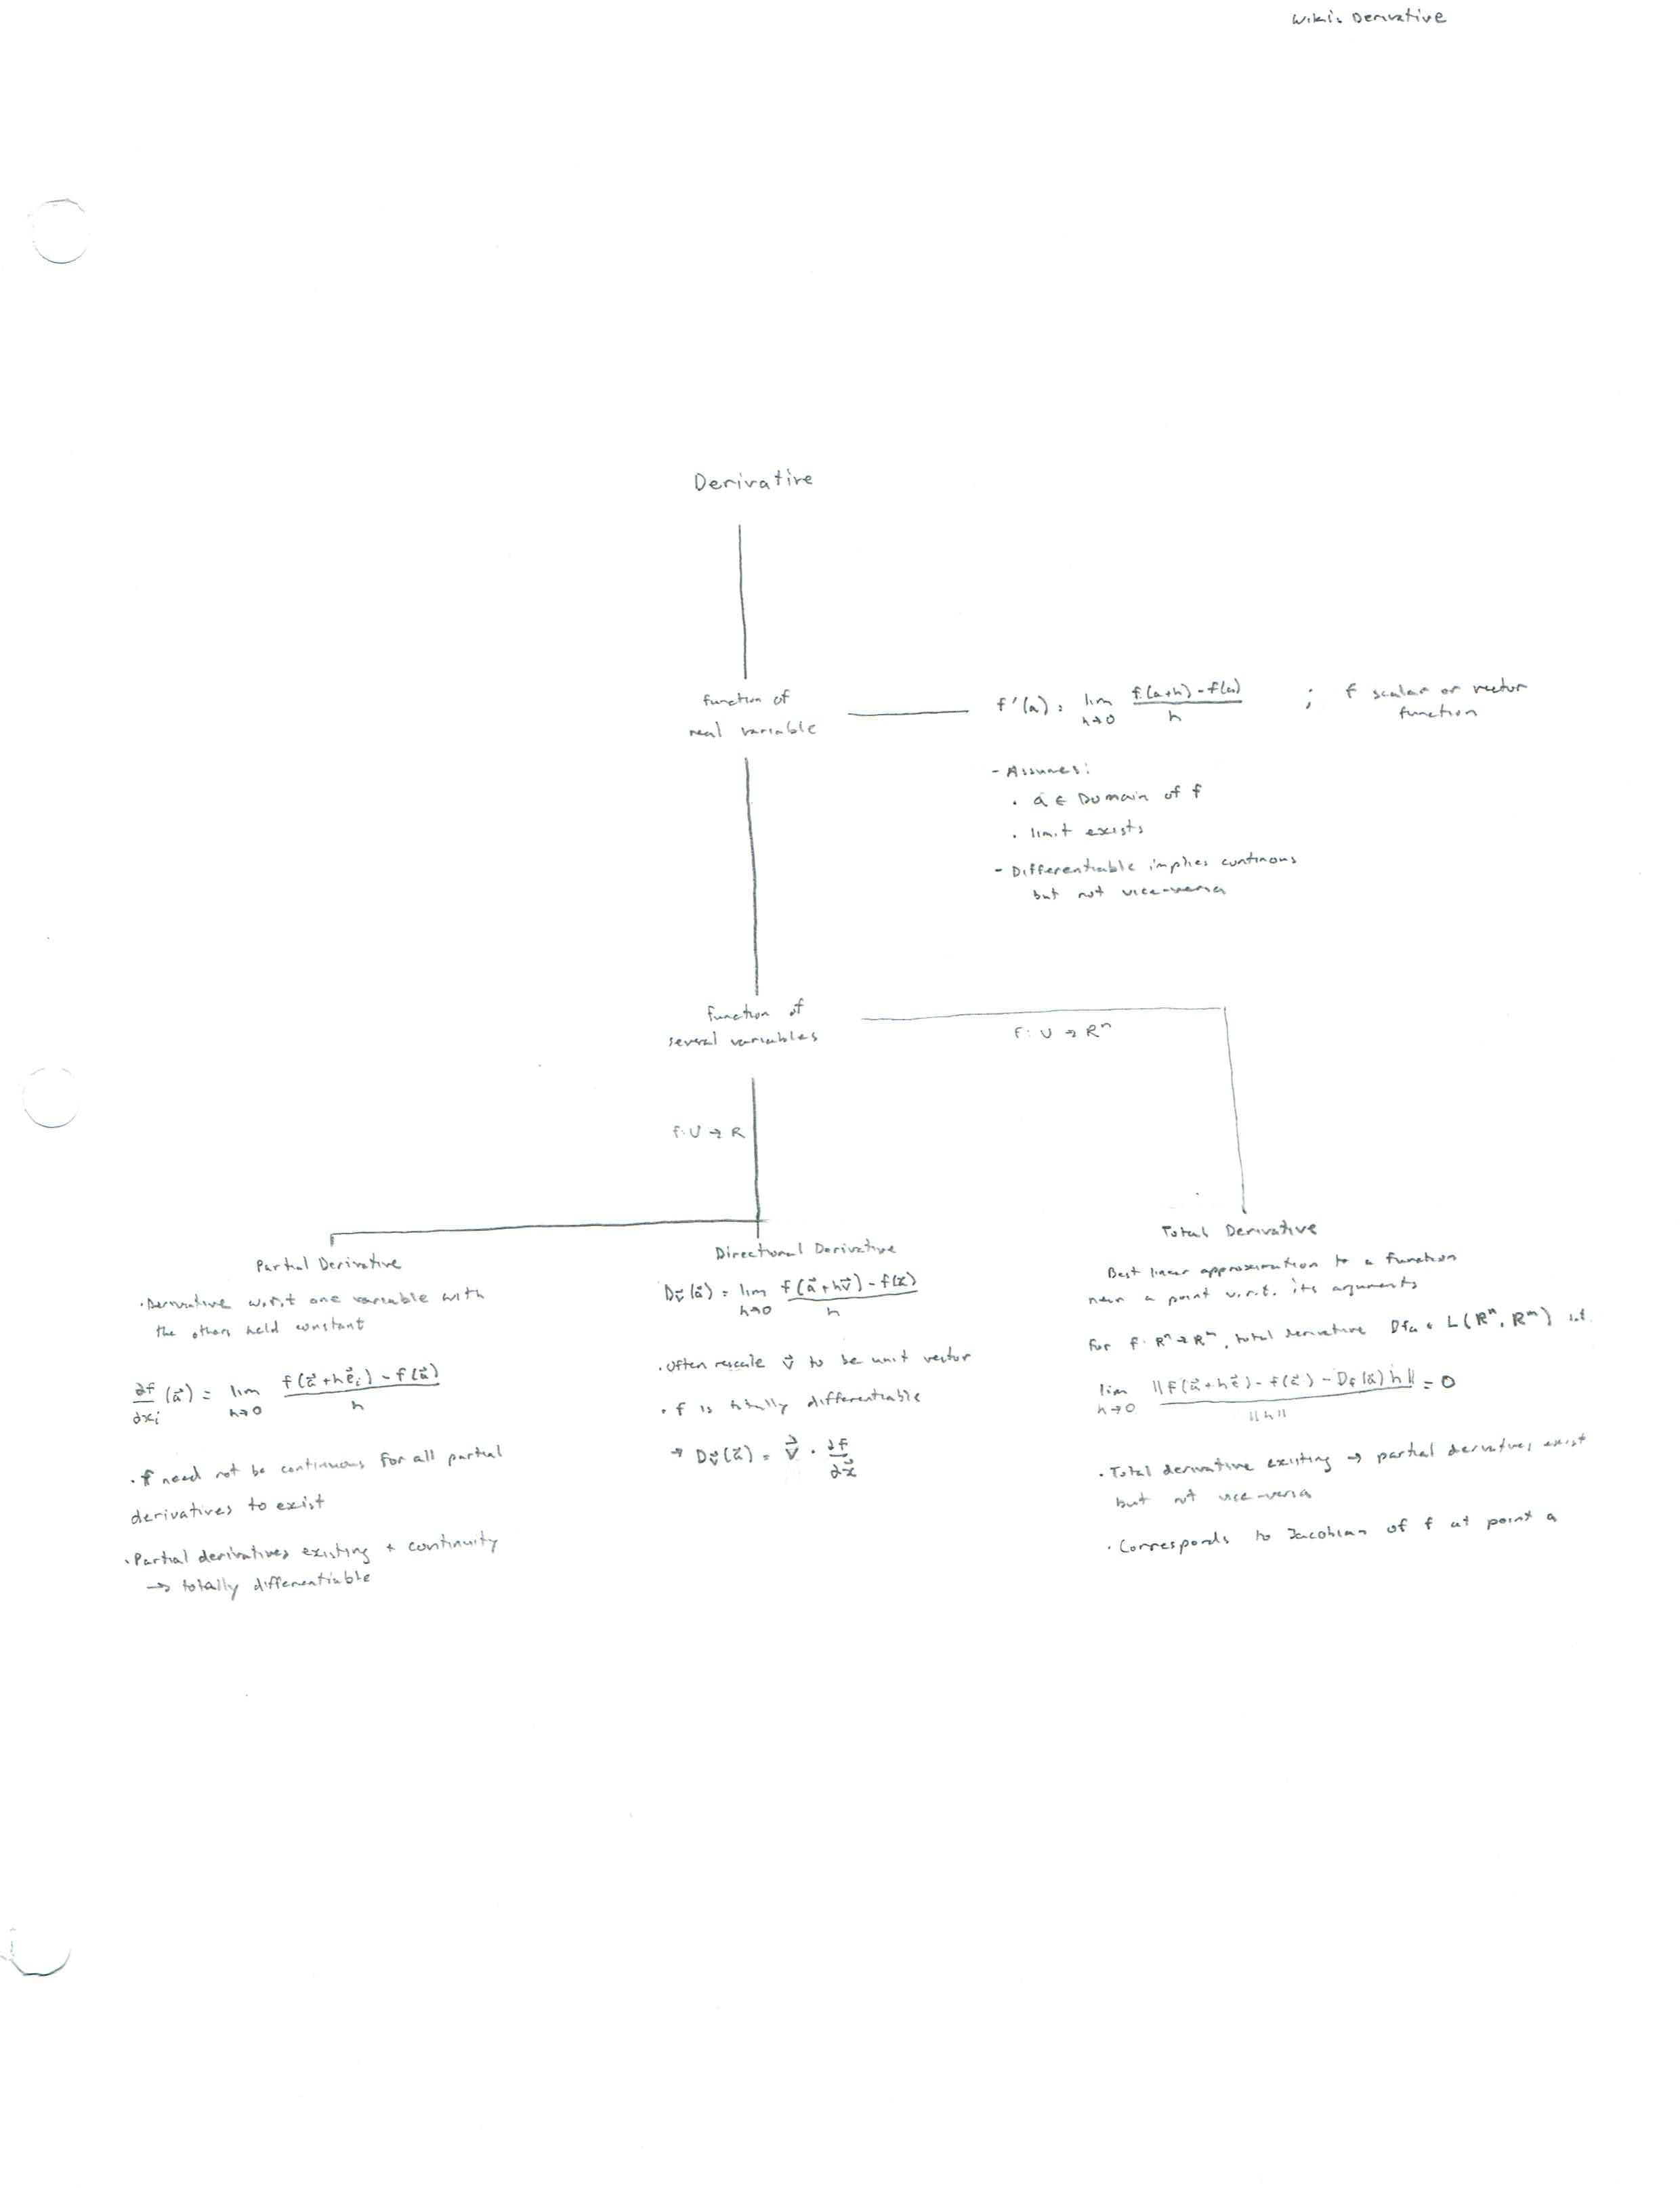 Wiki: Derivative
Derivative
function of
real variable
f'(a) = lim h→0 f(a+h) - f(a) / h ; f scalar or vector
function
- Assumes:
• a ∈ Domain of f
• limit exists
- Differentiable implies continous
but not vice-versa
function of
several variables
f: U → Rⁿ
f: U → R
Partial Derivative
• Derivative w.r.t one variable with
the others held constant
∂f/∂xᵢ (a⃗) = lim h→0 f(a⃗+he⃗ᵢ) - f(a⃗) / h
• f need not be continuous for all partial
derivatives to exist
• Partial derivatives existing + continuity
→ totally differentiable
Directional Derivative
Dv⃗(a⃗) = lim h→0 f(a⃗+hv⃗) - f(x⃗) / h
• Often rescale v⃗ to be unit vector
• f is totally differentiable
→ Dv⃗(a⃗) = v⃗ · ∂f/∂x⃗
Total Derivative
Best linear approximation to a function
near a point w.r.t. its arguments
For f: Rⁿ → Rᵐ, total derivative Dfₐ ∈ L(Rⁿ, Rᵐ) s.t.
lim h→0 ||f(a⃗+he⃗) - f(a⃗) - Df(a⃗)h|| / ||h|| = 0
• Total derivative existing → partial derivatives exist
but not vice-versa
• Corresponds to Jacobian of f at point a